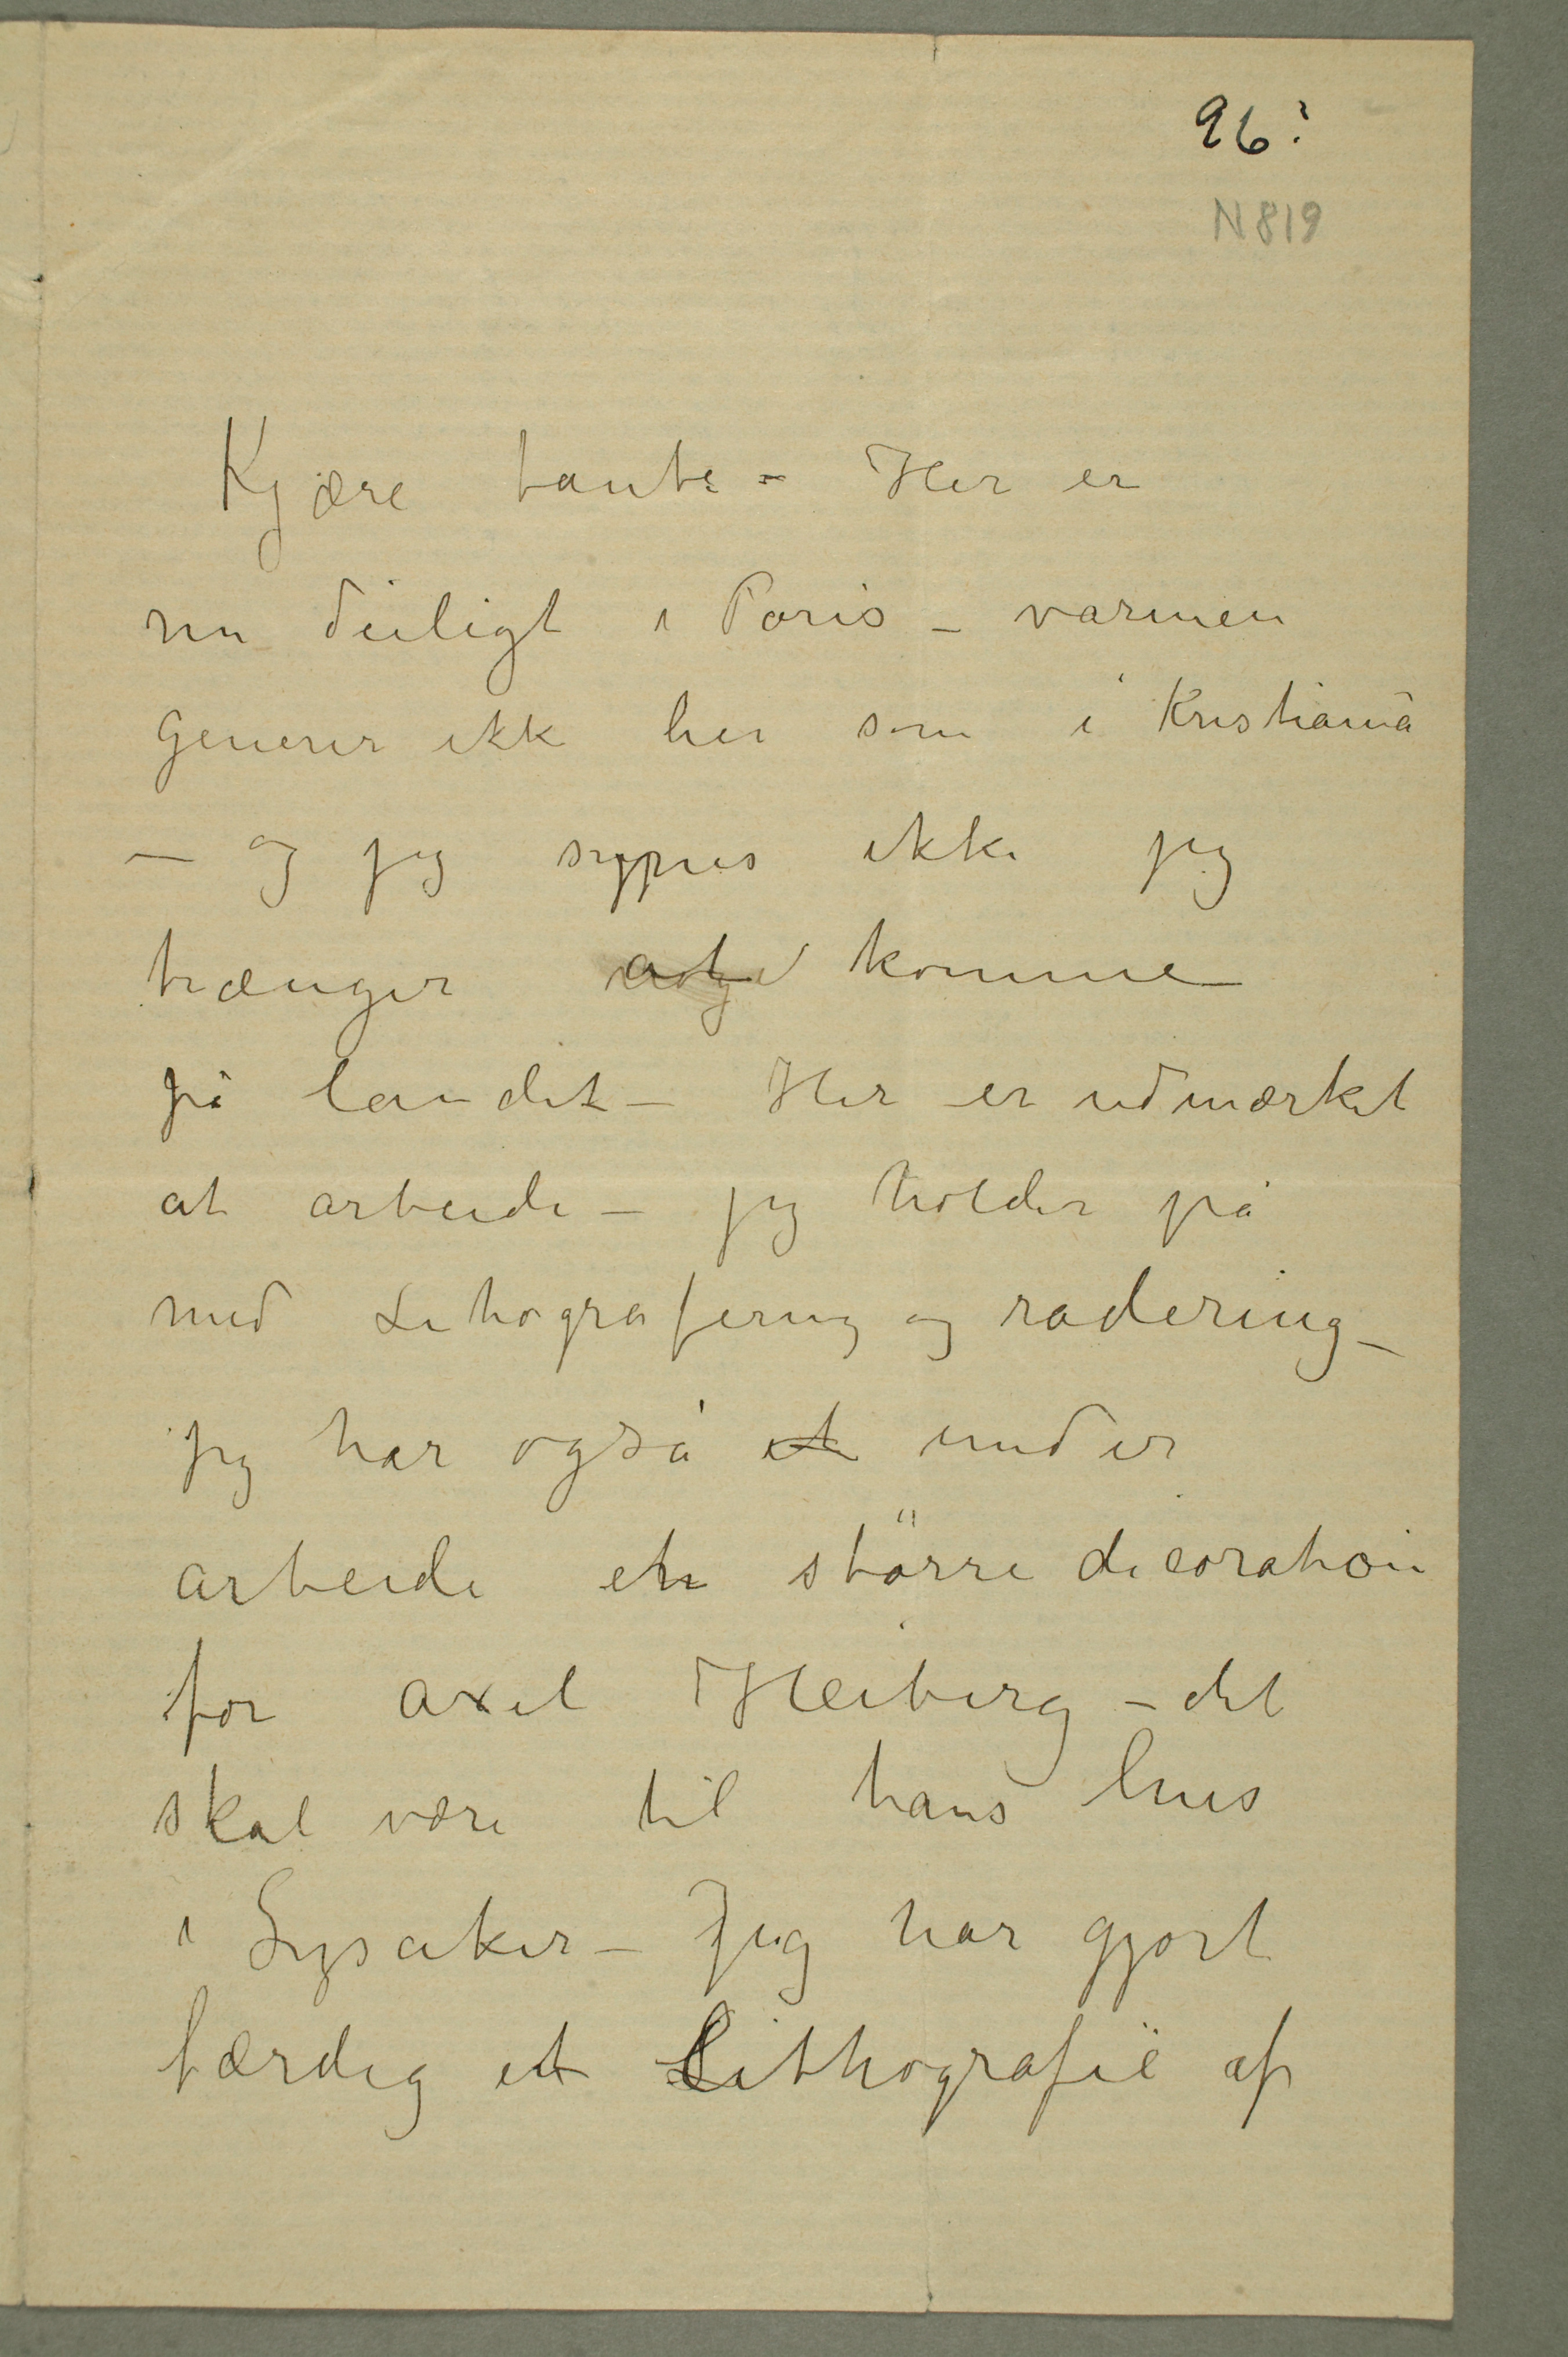 96?
N 819
Kjære tante – Her er
nu deiligt i Paris – varmen
generer ikke her som i Kristiania
– og jeg synes ikke jeg
trænger at komme
på landet – Her er udmærket
at arbeide – jeg holder på
med Lithografering og radering –
jeg har også et under
arbeide en större decoration
for Axel Heiberg – det
skal være til hans hus
i Lysaker – Jeg har gjort
færdig et Lithografie af